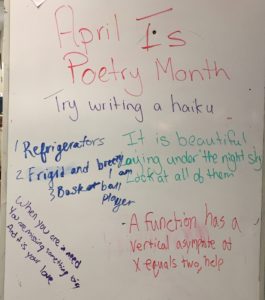 April Is
Poetry Month
Try writing a haiku
1 Refrigerators
2 Frigid and breezy
I am
3 Basketball
player
It is beautiful
Laying under the night sky
Look at all of them
When you are a need
You are missing something big
And it is your love
- A function has a
vertical asymptote at
x equals two, help